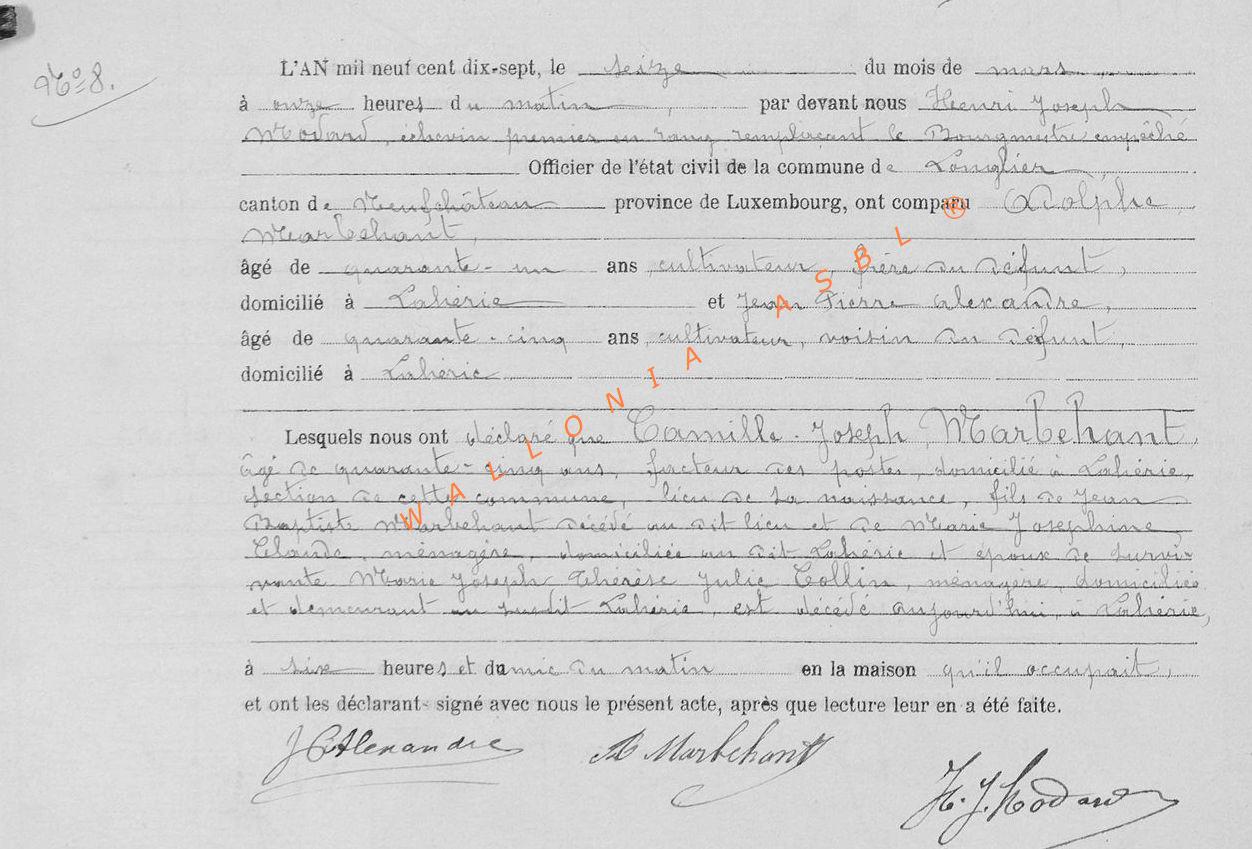 No 8.
L'AN mil neuf cent dix-sept, le seize du mois de mars
à onze heures du matin, par devant nous Henri Joseph
Modard, échevin premier en rang remplaçant le Bourgmestre empêché
Officier de l'état civil de la commune de Longlier,
canton de Neufchâteau province de Luxembourg, ont comparu Adolphe
Marbehant,
âgé de quarante-un ans, cultivateur, frère du défunt,
domicilié à Lahérie et Jean Pierre Alexandre,
âgé de quarante-cinq ans, cultivateur, voisin du défunt,
domicilié à Lahérie
Lesquels nous ont déclaré que Camille Joseph Marbehant,
âgé de quarante-cinq ans, facteur des postes, domicilié à Lahérie,
section de cette commune, lieu de sa naissance, fils de Jean
Baptiste Marbehant décédé au dit lieu et de Marie Josephine
Claude, ménagère, domiciliée au dit Lahérie et époux de survi-
vante Marie Joseph Thérèse Julie Collin, ménagère, domiciliée
et demeurant au susdit Lahérie, est décédé aujourd'hui, à Lahérie,
à six heures et demie du matin en la maison qu'il occupait,
et ont les déclarants signé avec nous le présent acte, après que lecture leur en a été faite.
JP Alexandre A Marbehant H. J. Modard
WALLONIA ASBL ®